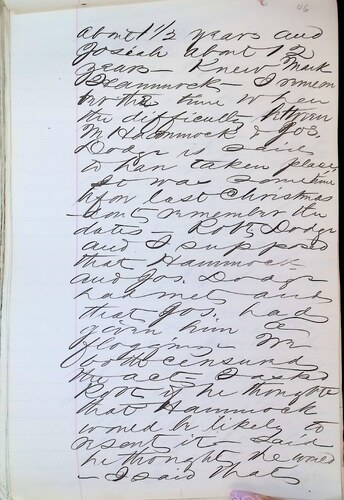 46
about 1 1/2 years and
Josiah about 12
years - Knew Mark
Hammock - I remem
ber the time when
the difficulty betwn
M Hammock & Jos.
Dodge is said
to han taken place,
It was sometime
befor last Christmas
- don't remember the
dates - Robt Dodge
and I supposed
that Hammock
and Jos. Dodge
had met and
that Jos. had
given him a
flogging - We
both censured
the act. I asked
Robt if he thought
that Hammock
would be likely to
resent it - said
he thought he would
- I said that